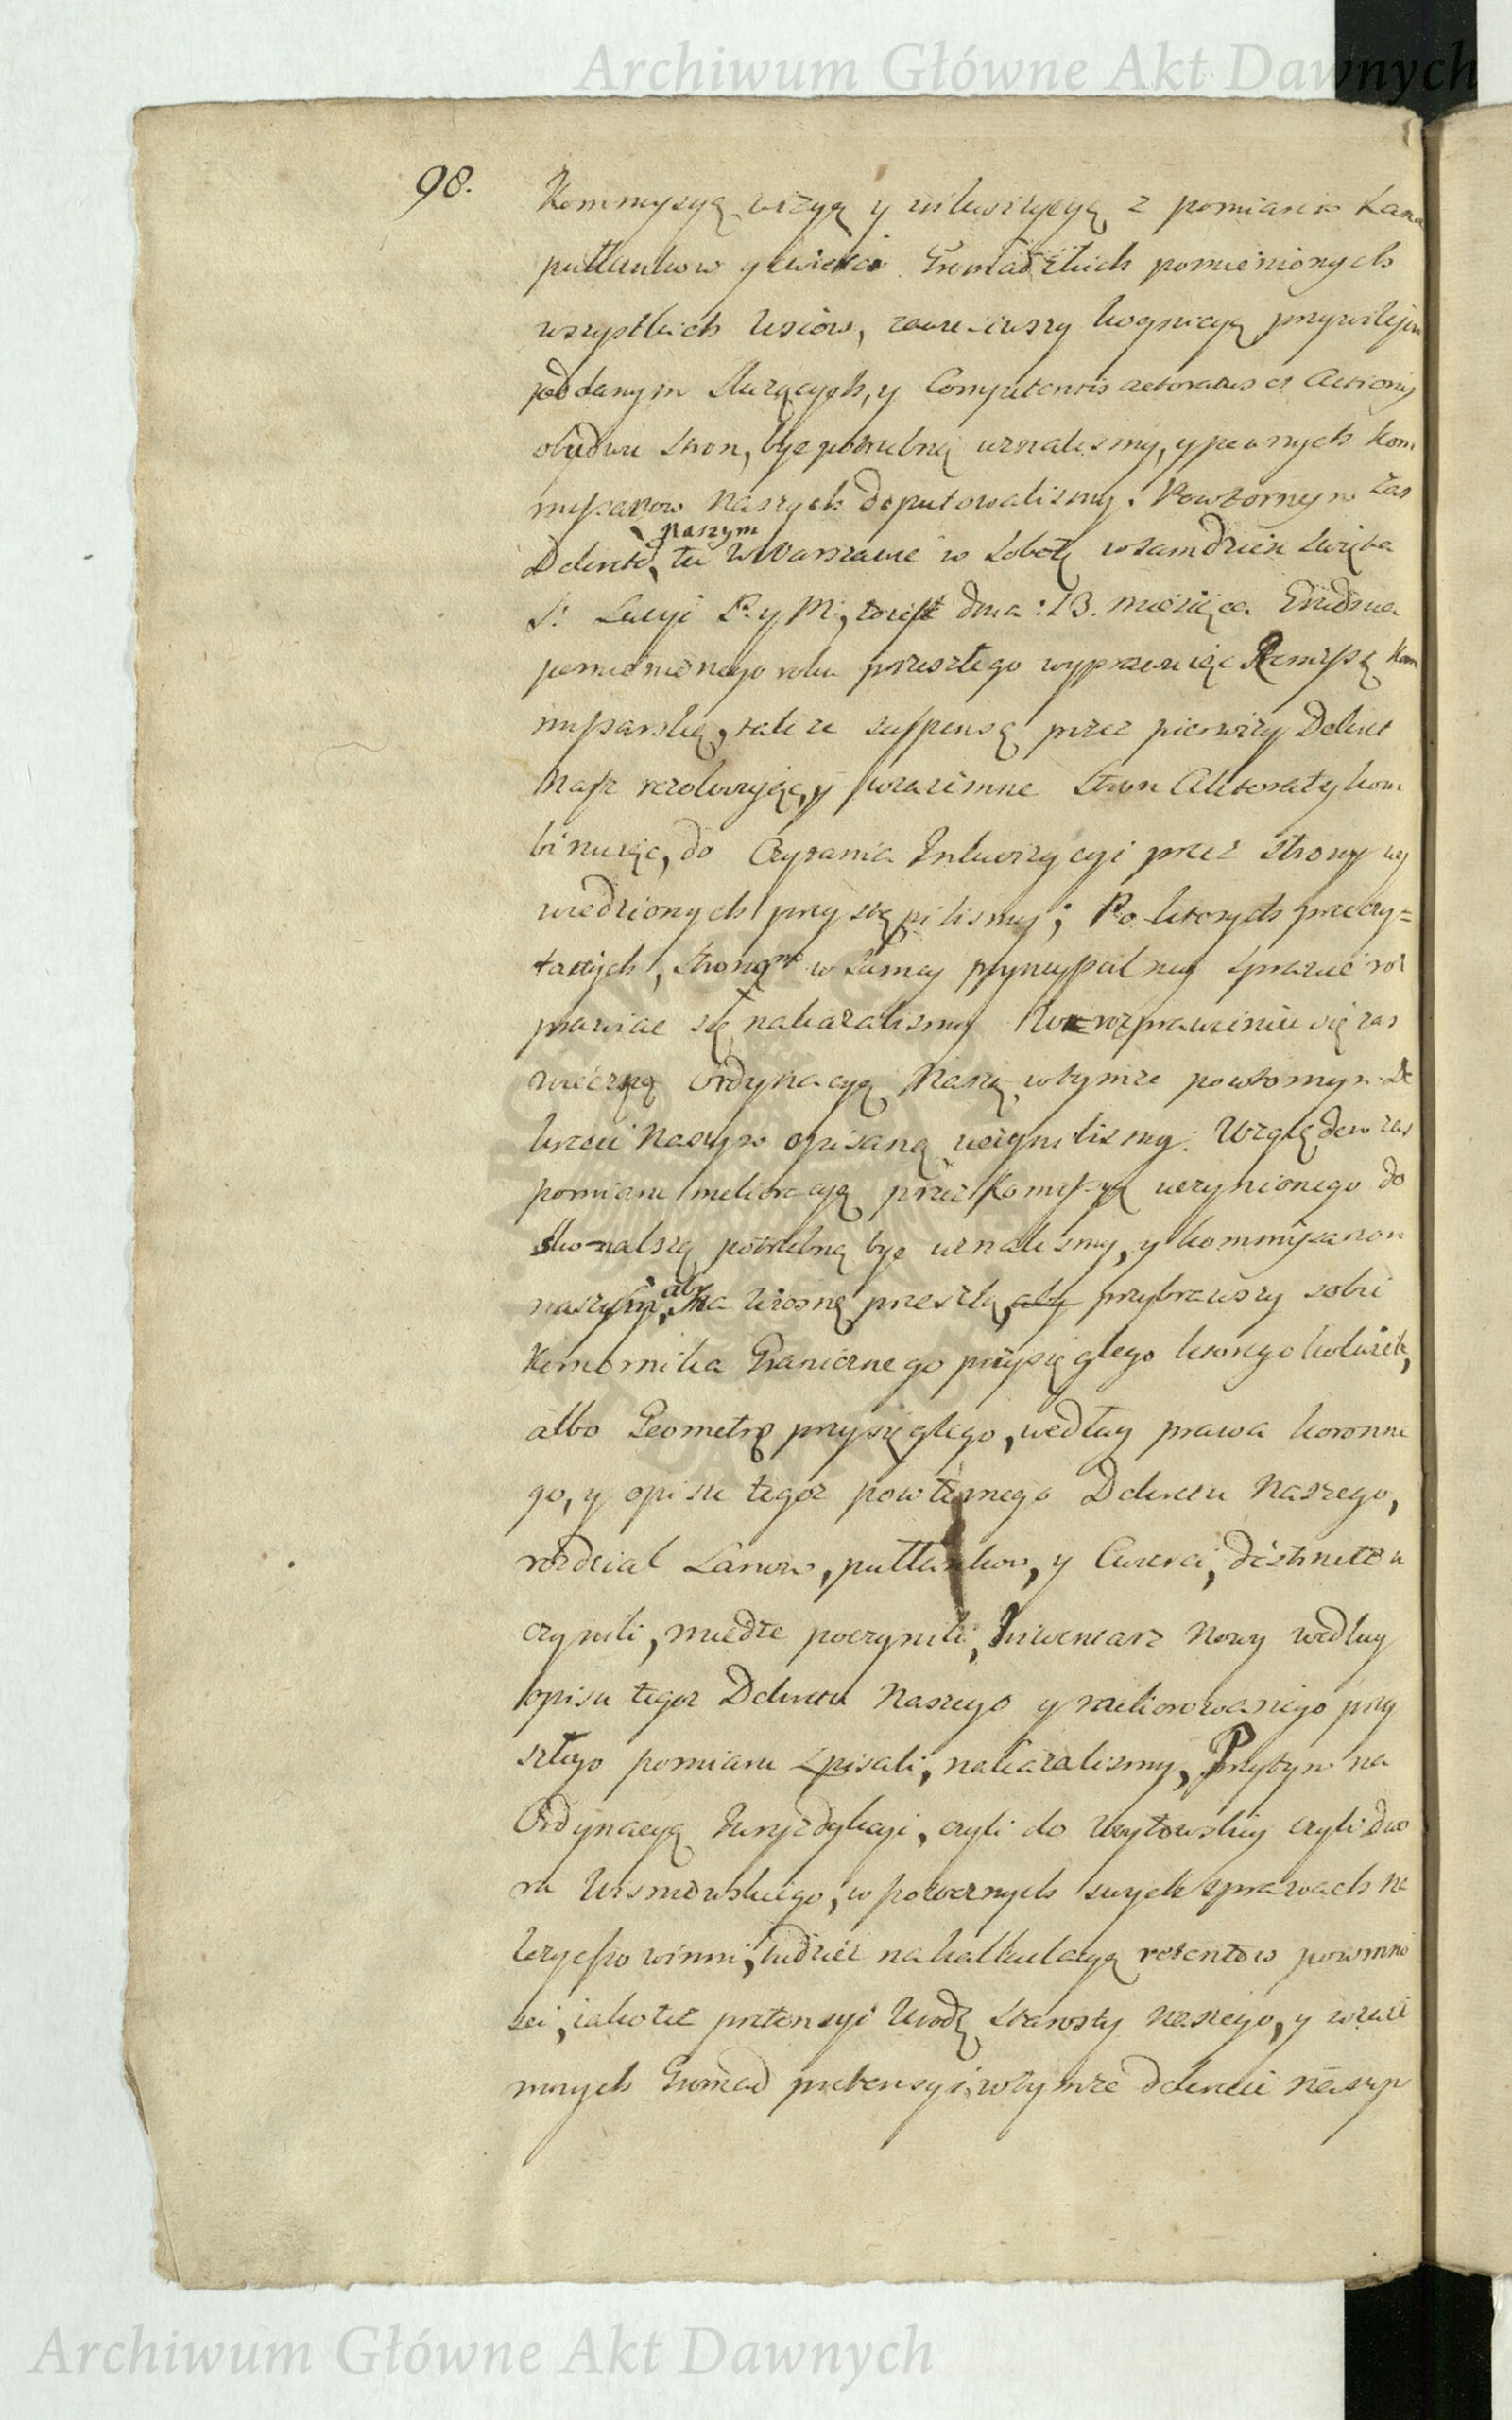 Archiwum Główne Akt Dawnych
98.
Kommysyą wizyą y inkwizycyą z pomiarem Lano
pułłankow y cwierci Gromadzkich pomienionych
wszystkich wsiow, zawiesiwszy kognicyą przywileju
poddanym służących, y Competentis actoratus et Actionis
obudwu stron, byc potrzebną uznalismy, y pewnych kom
missarzow Naszych deputowalismy. Powtornym zas
Dekrete naszym tu w Warszawie w Sobotę w sam dzien swięta
S: Lucyi P. y M:, to iest dnia :13. miesiąca Grudnia
pomienionego roku przeszłego wyprawuiąc Remissę kom
missarską, także suspensę przez pierwszy Dekret
Nasz rezolwując, y wzaiemne stron Aktoraty kom
binuiąc, do czytania Inkwizycyi przez strony wy
wiedzionych przystąpilismy; Po ktorych przeczy=
tanych, stronom w samey pryncypalney sprawie roz
prawiac się nakazalismy Po rozprawieniu się zas
wieczną ordynacyą Naszą w tymze powtornym De
krecie Naszym opisaną uczynilismy: Względem zas
pomiaru melioracyą przez Komissyą uczynionego do
skonalszą potrzebną byc uznalismy, y kommissarzom
naszym, aby na wiosnę przeszłą, aby przybrawszy sobie
Komornika Granicznego przysięgłego ktorego kolwiek,
albo Geometrę przysięgłego, według prawa koronne
go, y opisu tegoz powtornego Dekretu Naszego,
rozdział Lanow, pułłankow, y Cwierci, distincte u
czynili, miedze poczynili, Inwentarz Nowy według
opisu tegoz Dekretu Naszego y meliorowanego przy
szłego pomiaru spisali, nakazalismy, Przytym na
Ordynacyą Juryzdykcyi, czyli do Woytowskiey czyli Dwo
ru Uisniowskiego, w potocznych swych sprawach na
lezyc powinni, tudziez na kalkulacyą retentow powinno
sci, iako tez pretensyi Urodz. Starosty Naszego, y wzaie
mnych Gromad pretensyi, w tymze dekrecie naszym
Archiwum Główne Akt Dawnych